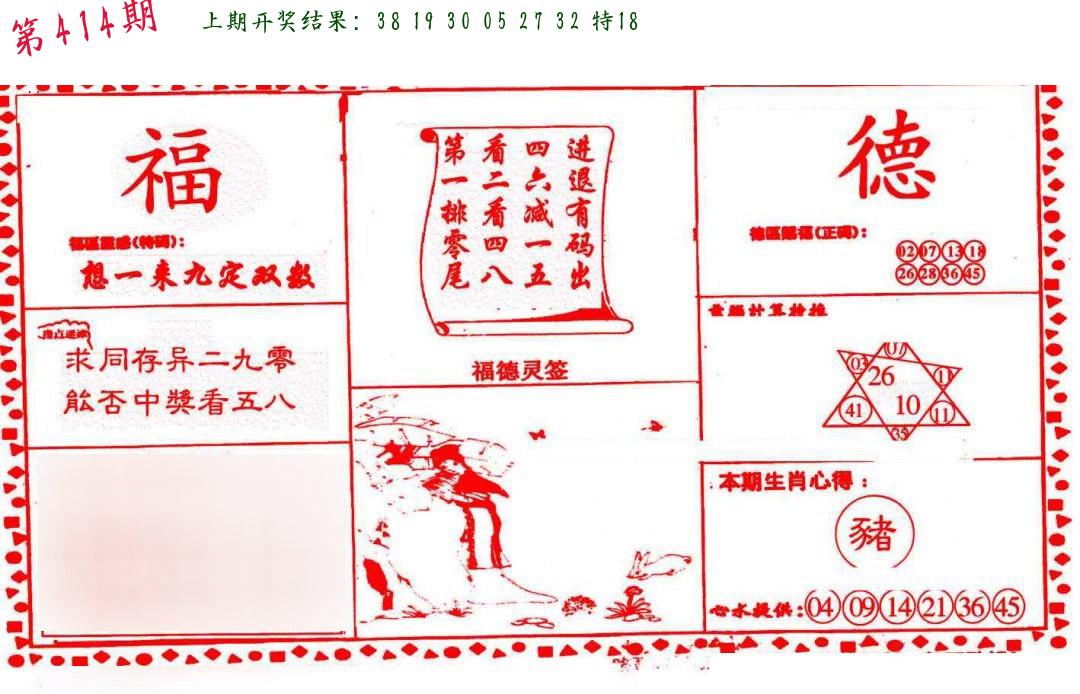 第414期
上期开奖结果: 38 19 30 05 27 32 特18
福
福區靈感(特碼):
想一来九定双数
求同存异二九零
能否中獎看五八
第一排零尾
看二看四八
四六减一五
进退有码出
福德灵签
德
德區賜福(正碼):
02 07 13 18
26 28 36 45
03
26
10
41
11
35
本期生肖心得:
豬
心水提供: 04 09 14 21 36 45